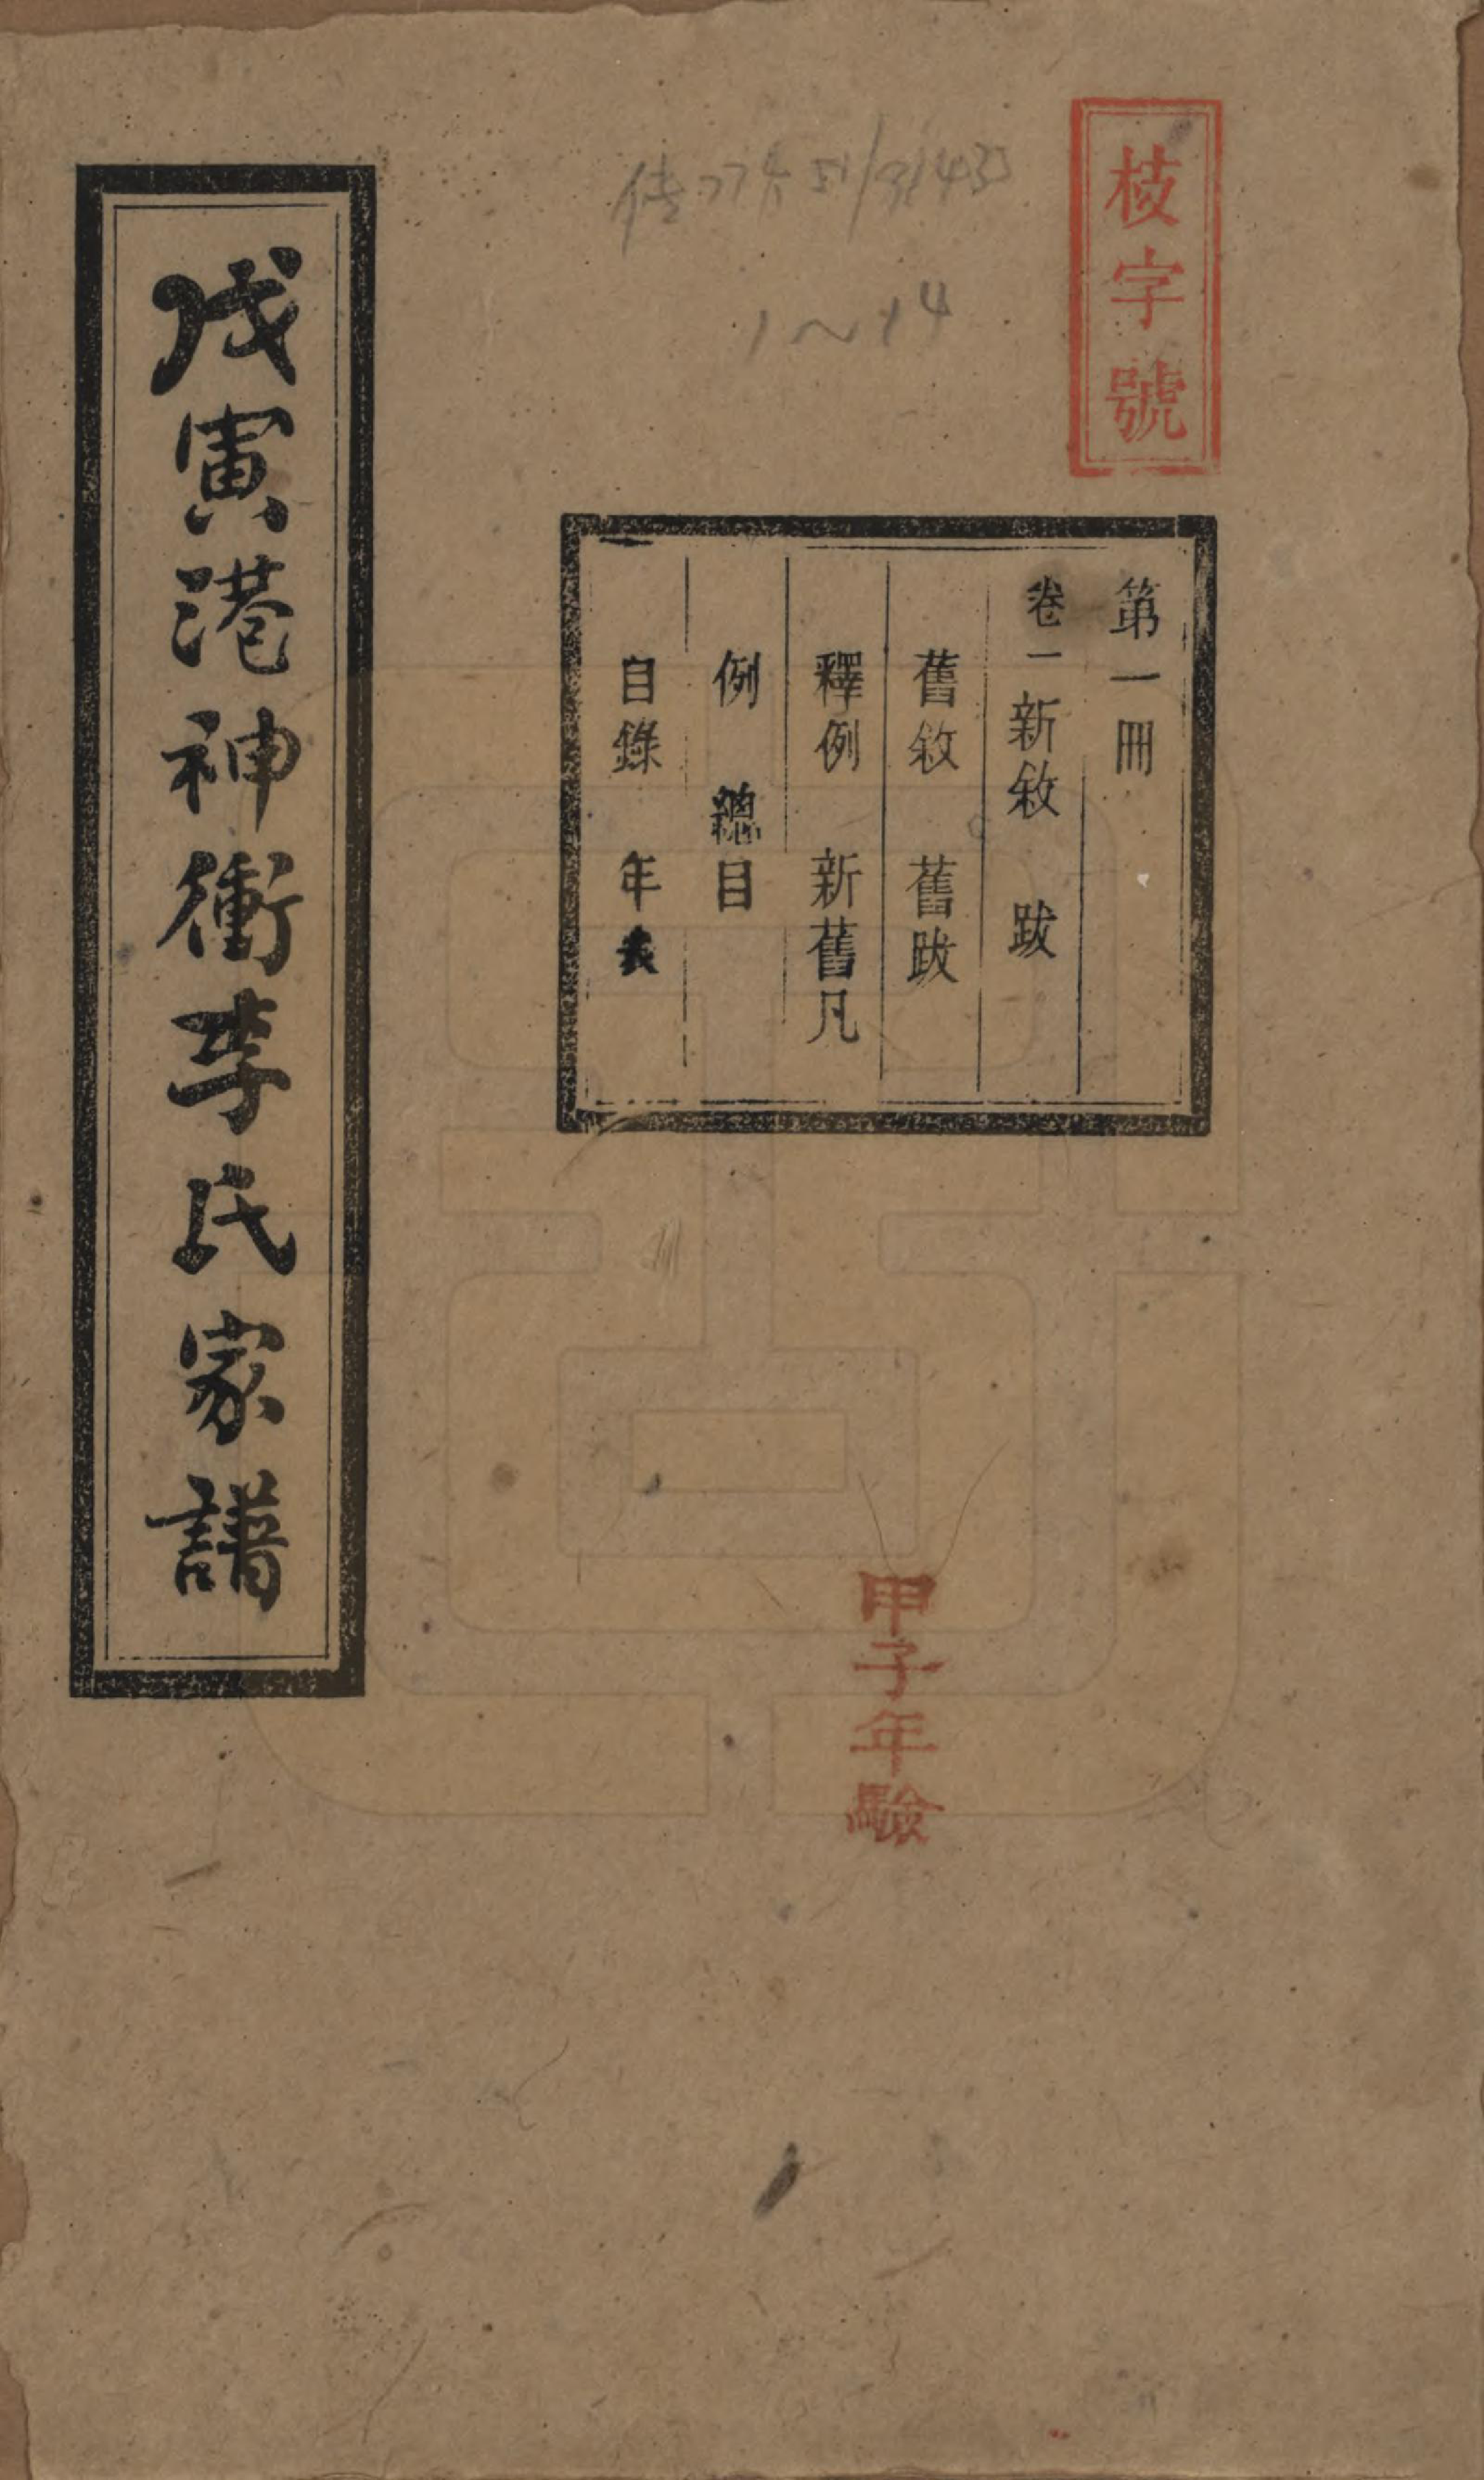 枝字號
第一冊
卷一 新敘 跋
舊敘 舊跋
釋例 新舊凡
例 總目
目錄 年表
戊寅港神衝李氏家譜
甲子年驗
1~14